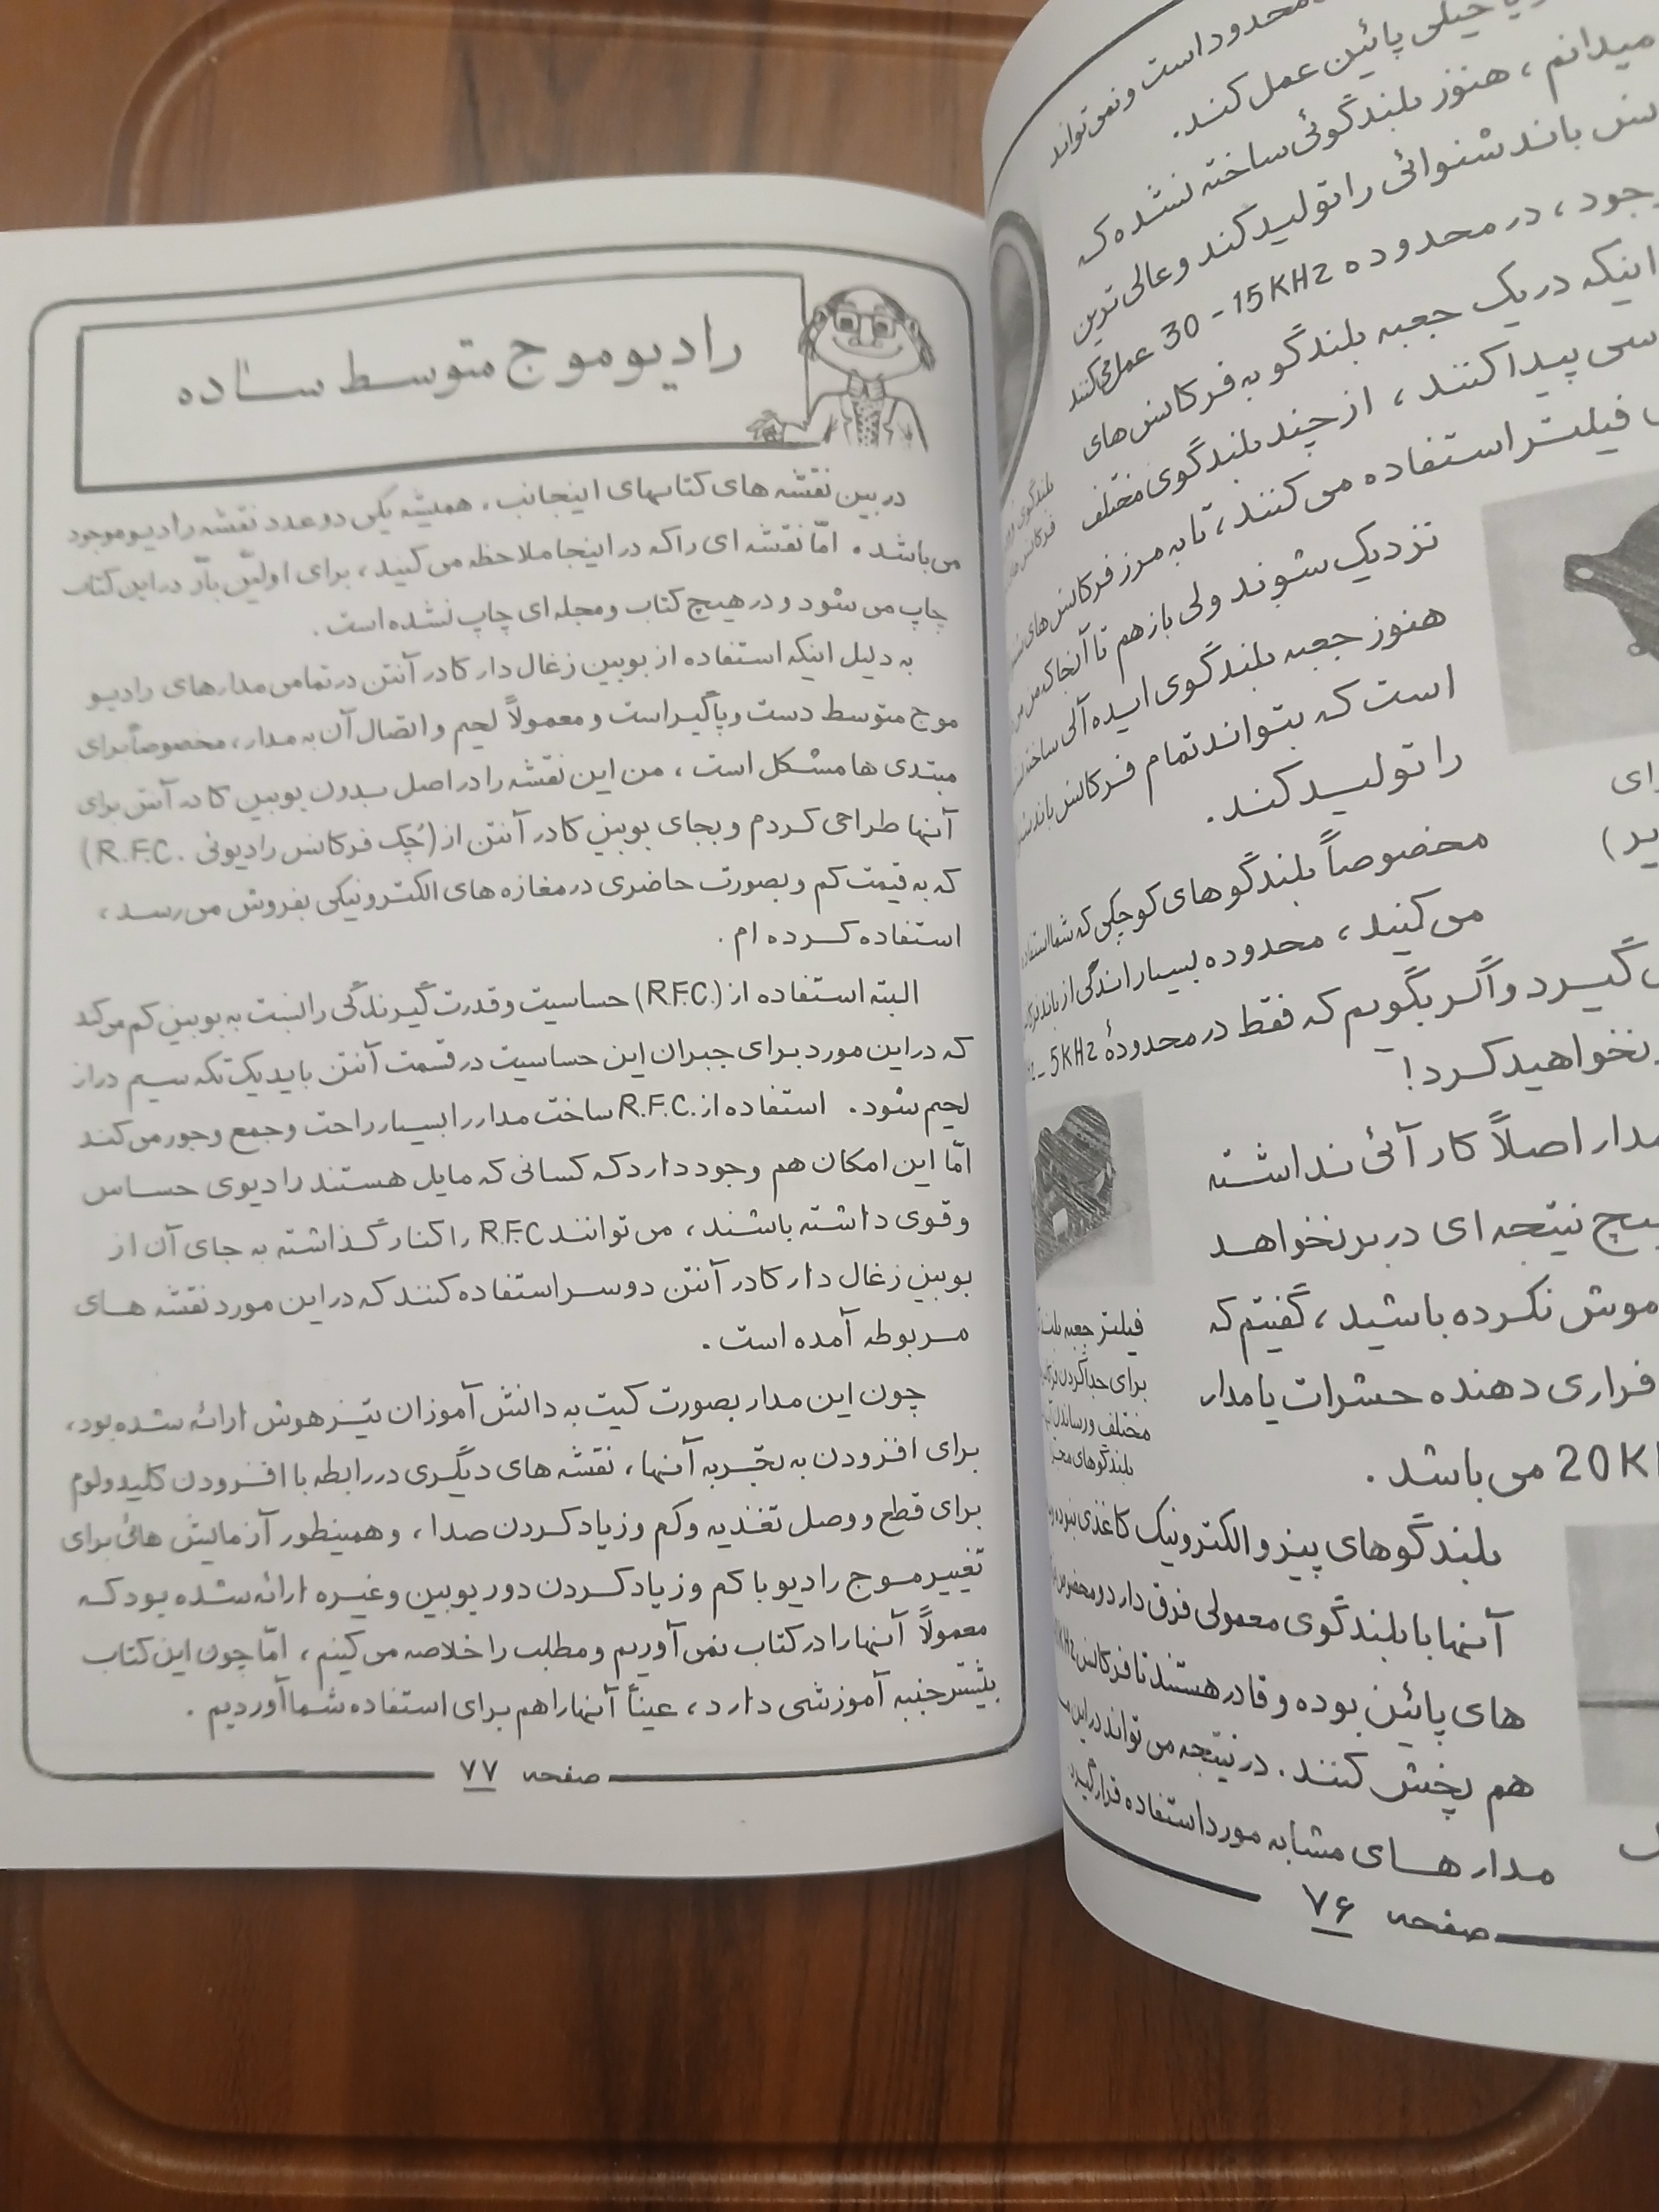 محدود است و نمی تواند
خیلی پائین عمل کند.
میدانم ، هنوز بلندگوئی ساخته نشده که
باند شنوائی را تولید کند و عالی ترین
در محدوده 30 - 15KHz عمل می کنند
اینکه در یک جعبه بلندگو به فرکانس های
پیدا کنند ، از چند بلندگوی مختلف
فیلتر استفاده می کنند ، تا به مرز فرکانس های
نزدیک شوند ولی باز هم تا آنجا که من
هنوز جعبه بلندگوی ایده آلی ساخته
است که بتواند تمام فرکانس باند
را تولید کند.
بلندگوی
فرکانس های
محضوصاً بلندگو های کوچکی که شما استفاده
می کنید ، محدوده بسیار اندکی از باند
گیرد و اگر بگویم که فقط در محدودهٔ 5KHz -
نخواهید کرد!
مدار اصلاً کار آئی نداشته
هیچ نتیجه ای در بر نخواهد
نکرده باشید ، گفتیم که
فراری دهنده حشرات یا مدار
20K می باشد .
فیلتر جعبه
برای جدا کردن
مختلف و رساندن
بلندگوهای
بلندگوهای پیزو الکترونیک کاغذی نبوده
آنها با بلندگوی معمولی فرق دارد و
های پائین بوده و قادر هستند تا فرکانس KHz
هم پخش کنند . در نتیجه می تواند در این
مدار هـای مشابه مورد استفاده قرار گیرد
صفحه ۷۶
رادیو موج متوسط ساده
در بین نقشه های کتابهای اینجانب ، همیشه یکی دو عدد نقشه رادیو موجود
می باشد . امّا نقشه ای را که در اینجا ملاحظه می کنید ، برای اولیّن بار در این کتاب
چاپ می شود و در هیچ کتاب و مجله ای چاپ نشده است .
به دلیل اینکه استفاده از بوبین زغال دار کادر آنتن در تمامی مدارهای رادیو
موج متوسط دست و پاگیر است و معمولاً لحیم و اتصال آن به مدار ، مخصوصاً برای
مبتدی ها مشکل است ، من این نقشه را در اصل بدون بوبین کادر آنتن برای
آنها طراحی کردم و بجای بوبین کادر آنتن از (چُک فرکانس رادیوئی R.F.C.)
که به قیمت کم و بصورت حاضری در مغازه های الکترونیکی بفروش می رسد ،
استفاده کرده ام .
البته استفاده از (.R.F.C) حساسیت و قدرت گیرندگی را نسبت به بوبین کم می کند
که در این مورد برای جبران این حساسیت در قسمت آنتن باید یک تکه سیم دراز
لحیم شود . استفاده از .R.F.C ساخت مدار را بسیار راحت و جمع و جور می کند
امّا این امکان هم وجود دارد که کسانی که مایل هستند رادیوی حساس
و قوی داشته باشند ، می توانند R.F.C را کنار گذاشته به جای آن از
بوبین زغال دار کادر آنتن دو سر استفاده کنند که در این مورد نقشه هـای
مربوطه آمده است .
چون این مدار بصورت کیت به دانش آموزان تیزهوش ارائه شده بود ،
برای افزودن به تجّربه آنها ، نقشه های دیگری در رابطه با افزودن کلید ولوم
برای قطع و وصل تغذیه و کم و زیاد کردن صدا ، و همینطور آزمایش هائی برای
تغییر موج رادیو با کم و زیاد کردن دور بوبین و غیره ارائه شده بود که
معمولاً آنها را در کتاب نمی آوریم و مطلب را خلاصه می کنیم ، امّا چون این کتاب
بیشتر جنبه آموزشی دارد ، عیناً آنها را هم برای استفاده شما آوردیم .
صفحه ۷۷